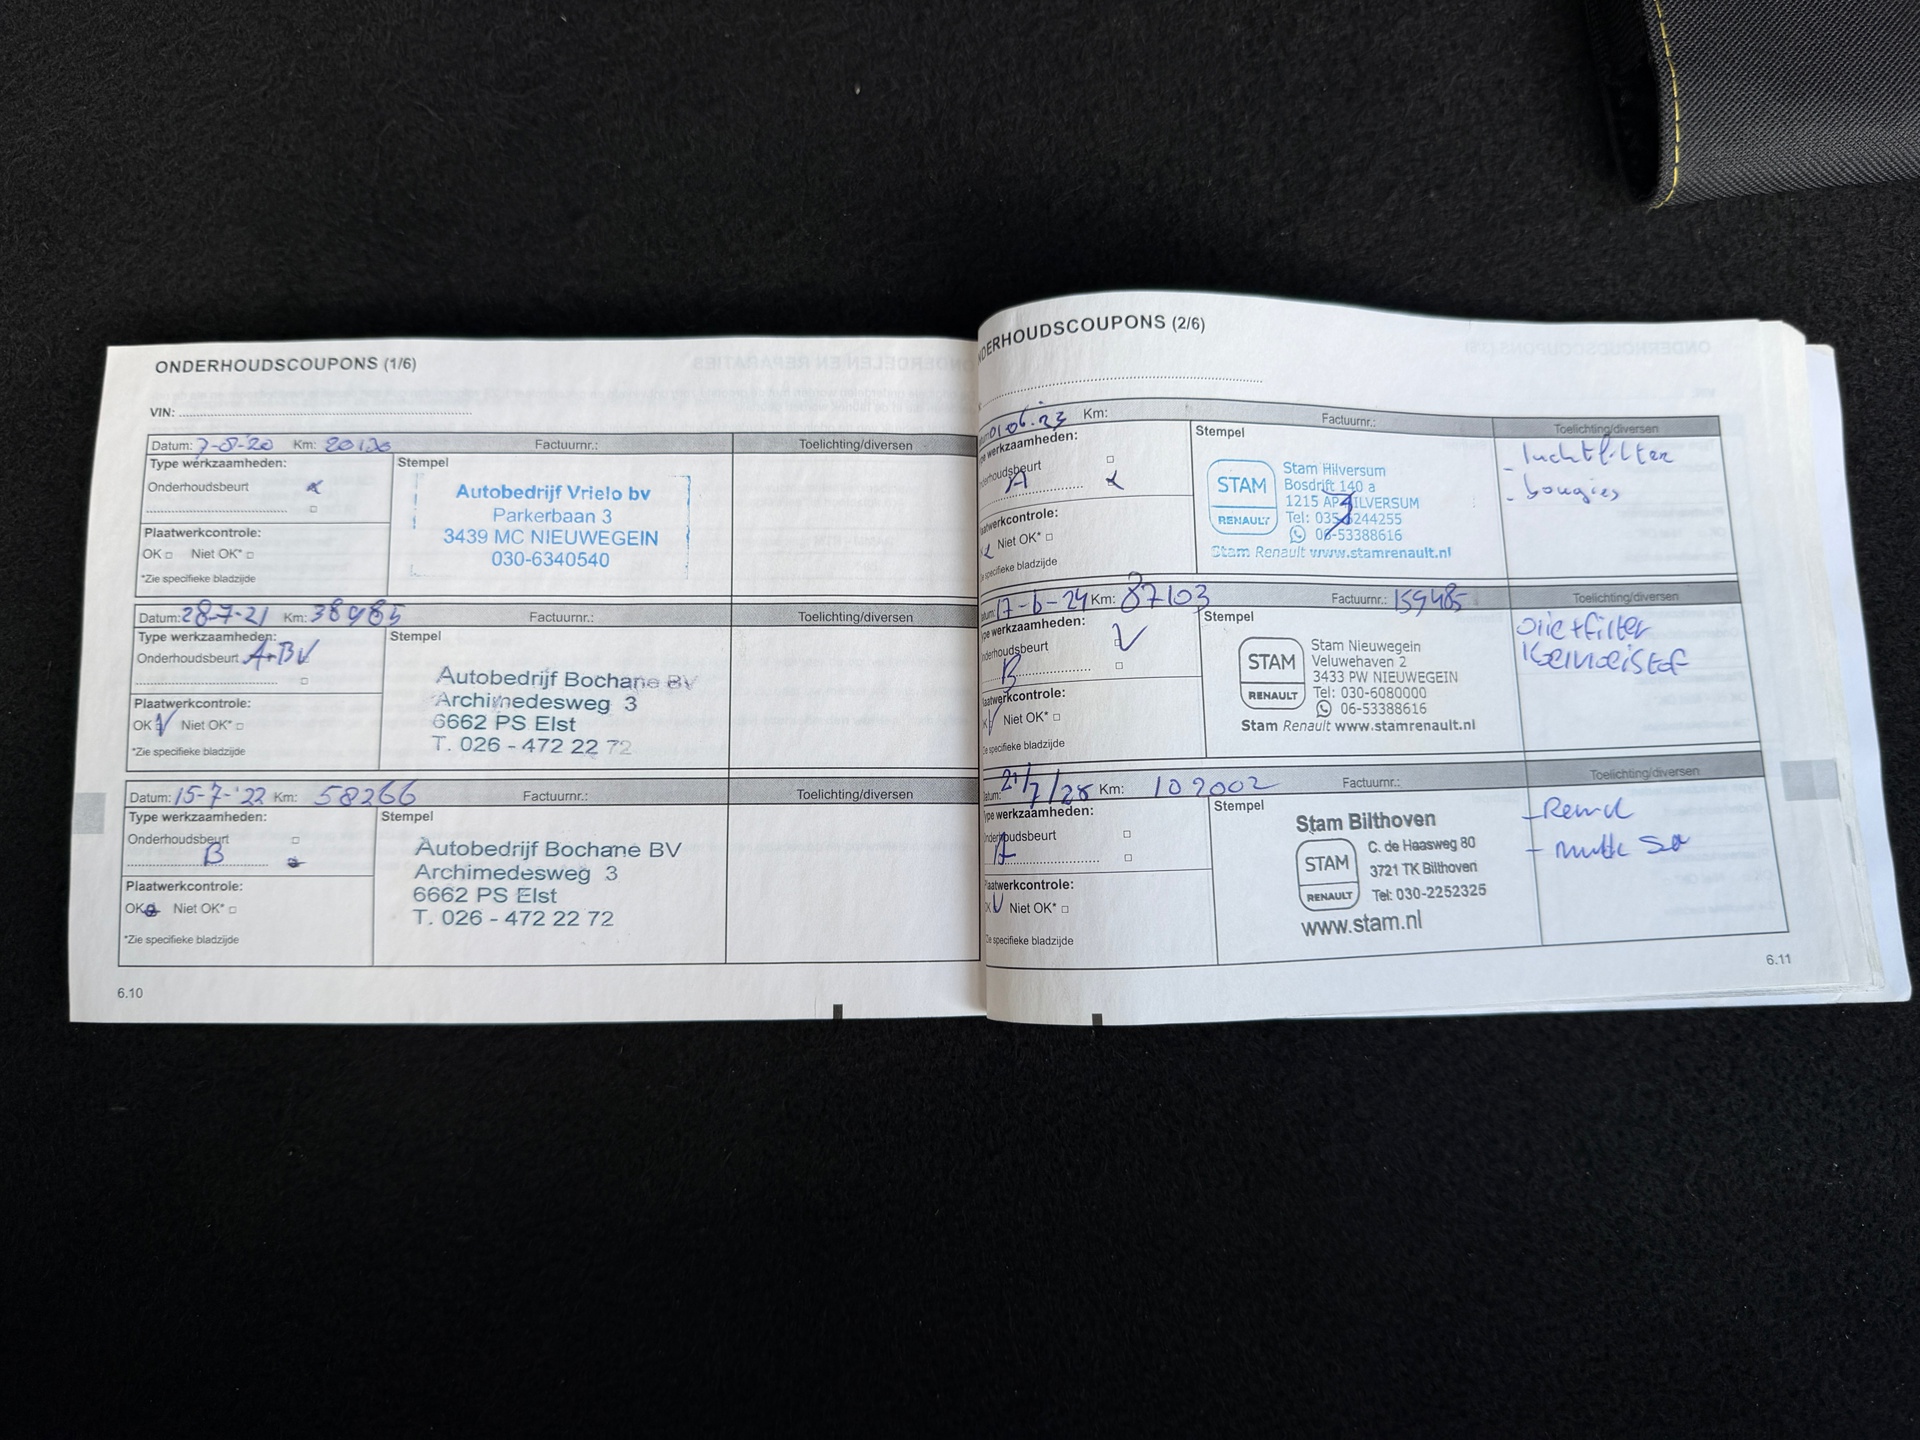 ONDERHOUDSCOUPONS (1/6)
VIN:
Datum: 7-8-'20 Km: 20130 Factuurnr.: Toelichting/diversen
Type werkzaamheden: Stempel
Onderhoudsbeurt
Plaatwerkcontrole:
OK Niet OK*
*Zie specifieke bladzijde
Autobedrijf Vrielo bv
Parkerbaan 3
3439 MC NIEUWEGEIN
030-6340540
Datum: 28-7-21 Km: 38985 Factuurnr.: Toelichting/diversen
Type werkzaamheden: Stempel
Onderhoudsbeurt A+B
Plaatwerkcontrole:
OK Niet OK*
*Zie specifieke bladzijde
Autobedrijf Bochane BV
Archimedesweg 3
6662 PS Elst
T. 026 - 472 22 72
Datum: 15-7-'22 Km: 58266 Factuurnr.: Toelichting/diversen
Type werkzaamheden: Stempel
Onderhoudsbeurt
B
Plaatwerkcontrole:
OK Niet OK*
*Zie specifieke bladzijde
Autobedrijf Bochane BV
Archimedesweg 3
6662 PS Elst
T. 026 - 472 22 72
6.10
NDERHOUDSCOUPONS (2/6)
01.06.23 Km: Factuurnr.: Toelichting/diversen
ype werkzaamheden: Stempel
nderhoudsbeurt
A
laatwerkcontrole:
Niet OK*
Zie specifieke bladzijde
STAM
RENAULT
Stam Hilversum
Bosdrift 140 a
1215 AP HILVERSUM
Tel: 035-6244255
06-53388616
Stam Renault www.stamrenault.nl
- luchtfilter
- bougies
atum: 17-6-24 Km: 87103 Factuurnr.: 159485 Toelichting/diversen
Type werkzaamheden: Stempel
Onderhoudsbeurt
B
Plaatwerkcontrole:
Niet OK*
Zie specifieke bladzijde
STAM
RENAULT
Stam Nieuwegein
Veluwehaven 2
3433 PW NIEUWEGEIN
Tel: 030-6080000
06-53388616
Stam Renault www.stamrenault.nl
olie+filter
Datum: Km: 102002 Factuurnr.: Toelichting/diversen
Type werkzaamheden: Stempel
Onderhoudsbeurt
A
Plaatwerkcontrole:
Niet OK*
Zie specifieke bladzijde
Stam Bilthoven
STAM
RENAULT
C. de Haasweg 80
3721 TK Bilthoven
Tel: 030-2252325
www.stam.nl
6.11